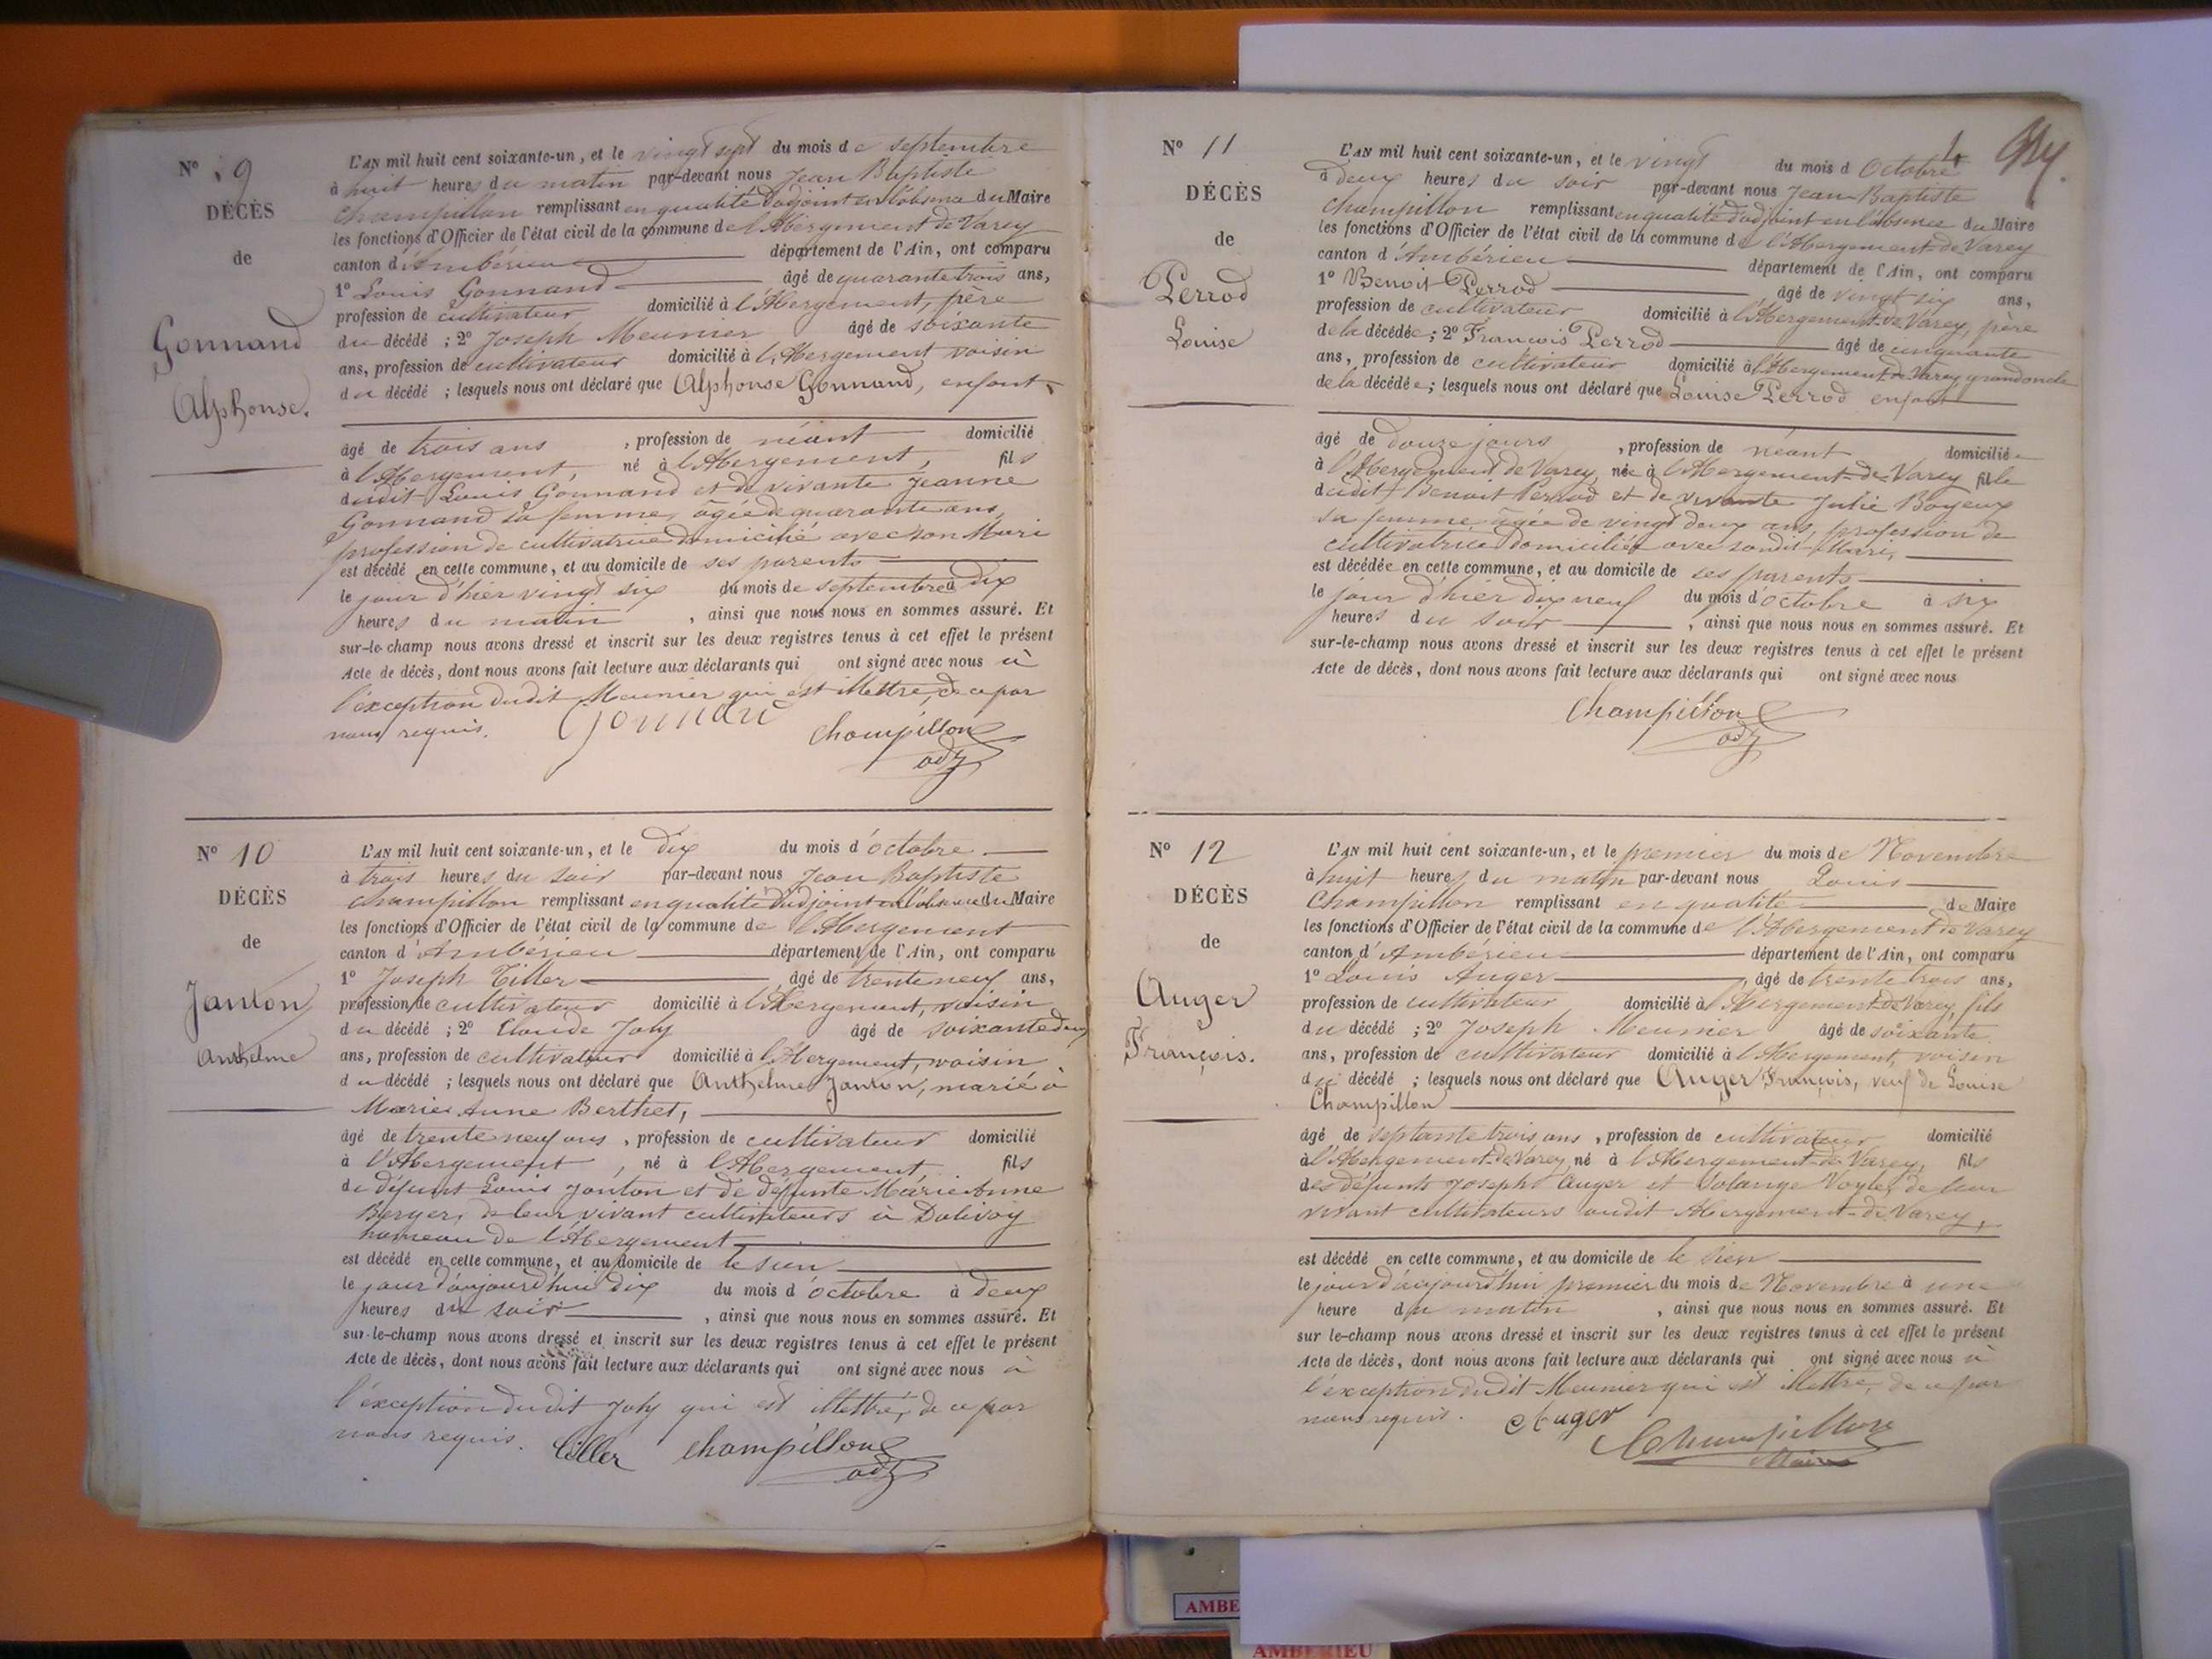 N° 9
DÉCÈS
de
Gonnand
Alphonse.
L'AN mil huit cent soixante-un, et le vingt sept du mois de septembre
à huit heures du matin par-devant nous Jean Baptiste
Champillon remplissant en qualité d'adjoint en l'absence du Maire
les fonctions d'Officier de l'état civil de la commune de l'Abergement de Varey
canton d'Ambérieu département de l'Ain, ont comparu
1° Louis Gonnand âgé de quarante trois ans,
profession de cultivateur domicilié à l'Abergement, père
du décédé ; 2° Joseph Meunier âgé de soixante
ans, profession de cultivateur domicilié à l'Abergement voisin
du décédé ; lesquels nous ont déclaré que Alphonse Gonnand, enfant
âgé de trois ans , profession de néant domicilié
à l'Abergement, né à l'Abergement, fils
dudit Louis Gonnand et de vivante Jeanne
Gonnand sa femme, agée de quarante ans,
profession de cultivatrice domicilié avec son Mari
est décédé en cette commune, et au domicile de ses parents
le jour d'hier vingt six du mois de septembre à dix
heures du matin , ainsi que nous nous en sommes assuré. Et
sur-le-champ nous avons dressé et inscrit sur les deux registres tenus à cet effet le présent
Acte de décès, dont nous avons fait lecture aux déclarants qui ont signé avec nous à
l'exception dudit Meunier qui est illettré, de ce par
nous requis. Gonnand Champillon
adj
N° 10
DÉCÈS
de
Janton
Anthelme
L'AN mil huit cent soixante-un, et le dix du mois d'octobre
à trois heures du soir par-devant nous Jean Baptiste
Champillon remplissant en qualité d'adjoint en l'absence du Maire
les fonctions d'Officier de l'état civil de la commune de l'Abergement
canton d'Ambérieu département de l'Ain, ont comparu
1° Joseph Tiller âgé de trente neuf ans,
profession de cultivateur domicilié à l'Abergement, voisin
du décédé ; 2° Claude Joly âgé de soixante deux
ans, profession de cultivateur domicilié à l'Abergement, voisin
du décédé ; lesquels nous ont déclaré que Anthelme Janton, marié à
Marie Anne Berthet,
âgé de trente neuf ans , profession de cultivateur domicilié
à l'Abergement , né à l'Abergement, fils
de défunt Louis Janton et de défunte Marie Anne
Berger, de leur vivant cultivateurs à Dalivoy
hameau de l'Abergement
est décédé en cette commune, et au domicile de le sien
le jour d'aujourd'hui dix du mois d'octobre à deux
heures du soir , ainsi que nous nous en sommes assuré. Et
sur-le-champ nous avons dressé et inscrit sur les deux registres tenus à cet effet le présent
Acte de décès, dont nous avons fait lecture aux déclarants qui ont signé avec nous à
l'exception dudit Joly qui est illettré, de ce par
nous requis. Tiller Champillon
adj
N° 11
DÉCÈS
de
Perrod
Louise
L'AN mil huit cent soixante-un, et le vingt du mois d Octobre
à deux heures du soir par-devant nous Jean Baptiste
Champillon remplissant en qualité d'adjoint en l'absence du Maire
les fonctions d'Officier de l'état civil de la commune de l'Abergement-de Varey
canton d'Ambérieu département de l'Ain, ont comparu
1° Benoit Perrod âgé de vingt six ans,
profession de cultivateur domicilié à l'Abergement-de Varey, père
de la décédée ; 2° François Perrod âgé de cinquante
ans, profession de cultivateur domicilié à l'Abergement-de Varey grand oncle
de la décédée ; lesquels nous ont déclaré que Louise Perrod enfant
âgé de douze jours , profession de néant domiciliée
à l'Abergement de Varey, née à l'Abergement-de-Varey fille
dudit Benoit Perrod et de vivante Julie Boyeux
sa femme âgée de vingt deux ans, profession de
cultivatrice domiciliée avec sondit Mari,
est décédée en cette commune, et au domicile de ses parents
le jour d'hier dix neuf du mois d'octobre à six
heures du soir , ainsi que nous nous en sommes assuré. Et
sur-le-champ nous avons dressé et inscrit sur les deux registres tenus à cet effet le présent
Acte de décès, dont nous avons fait lecture aux déclarants qui ont signé avec nous
Champillon
adj
N° 12
DÉCÈS
de
Auger
François.
L'AN mil huit cent soixante-un, et le premier du mois de Novembre
à huit heures du matin par-devant nous Louis
Champillon remplissant en qualité de Maire
les fonctions d'Officier de l'état civil de la commune de l'Abergement de Varey
canton d'Ambérieu département de l'Ain, ont comparu
1° Louis Auger , âgé de trente trois ans,
profession de cultivateur domicilié à l'Abergement-de Varey, fils
du décédé ; 2° Joseph Meunier âgé de soixante
ans, profession de cultivateur domicilié à l'Abergement, voisin
du décédé ; lesquels nous ont déclaré que Auger François, veuf de Louise
Champillon
âgé de septante trois ans , profession de cultivateur domicilié
à l'Abergement-de Varey, né à l'Abergement-de Varey, fils
des défunts Joseph Auger et Solange Voyle, de leur
vivant cultivateurs audit Abergement-de Varey,
est décédé en cette commune, et au domicile de le sien
le jour d'aujourd'hui premier du mois de Novembre à une
heure du matin , ainsi que nous nous en sommes assuré. Et
sur le-champ nous avons dressé et inscrit sur les deux registres tenus à cet effet le présent
Acte de décès, dont nous avons fait lecture aux déclarants qui ont signé avec nous à
l'exception dudit Meunier qui est illettré, de ce par
nous requis. Auger Champillon
Maire
AMBE
AMBERIEU